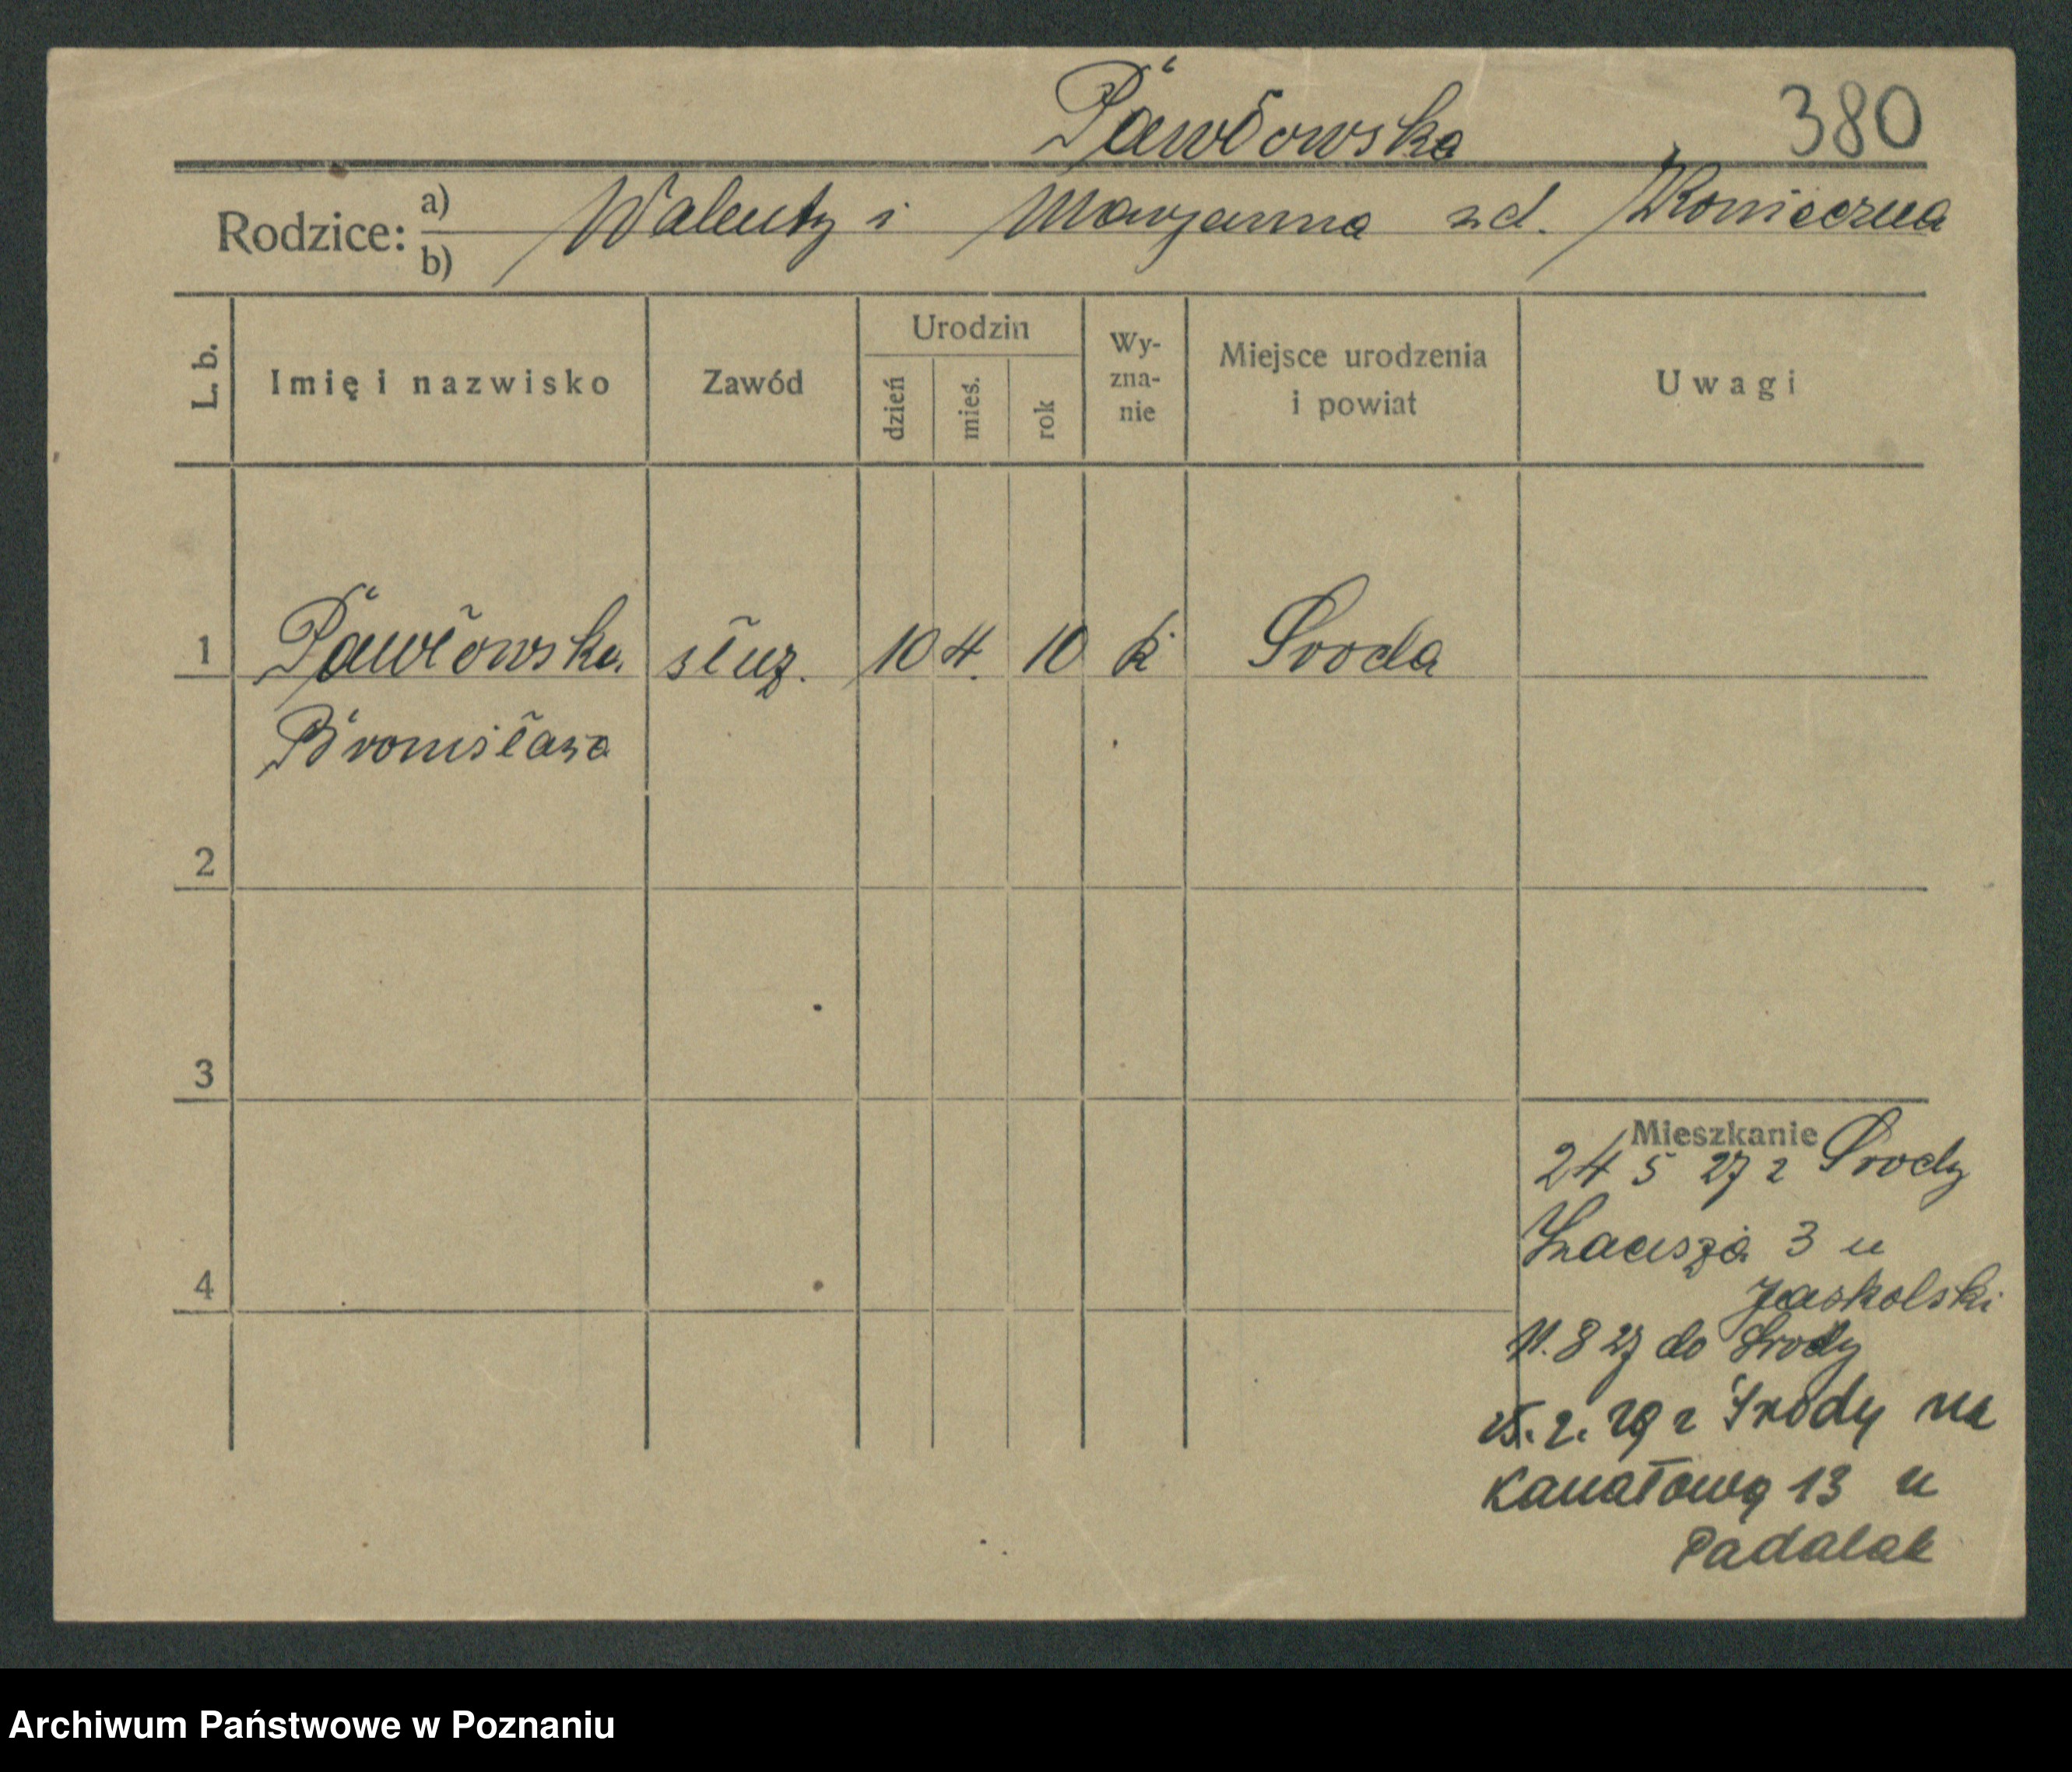 Pawłowska 380
Rodzice: a) b) Walenty i Marjanna zd. Konieczna
L. b. Imię i nazwisko Zawód Urodzin dzień mieś. rok Wy-zna-nie Miejsce urodzenia i powiat Uwagi
1 Pawłowska służ. 10 4. 10 k Środa
Bronisława
2
3
4
Mieszkanie
24 5 27 z Środy
3 u
Jaskolski
11. 8 27 do Środy
15. 2. 29 z Środy na
Kanałową 13 u
Padalak
Archiwum Państwowe w Poznaniu